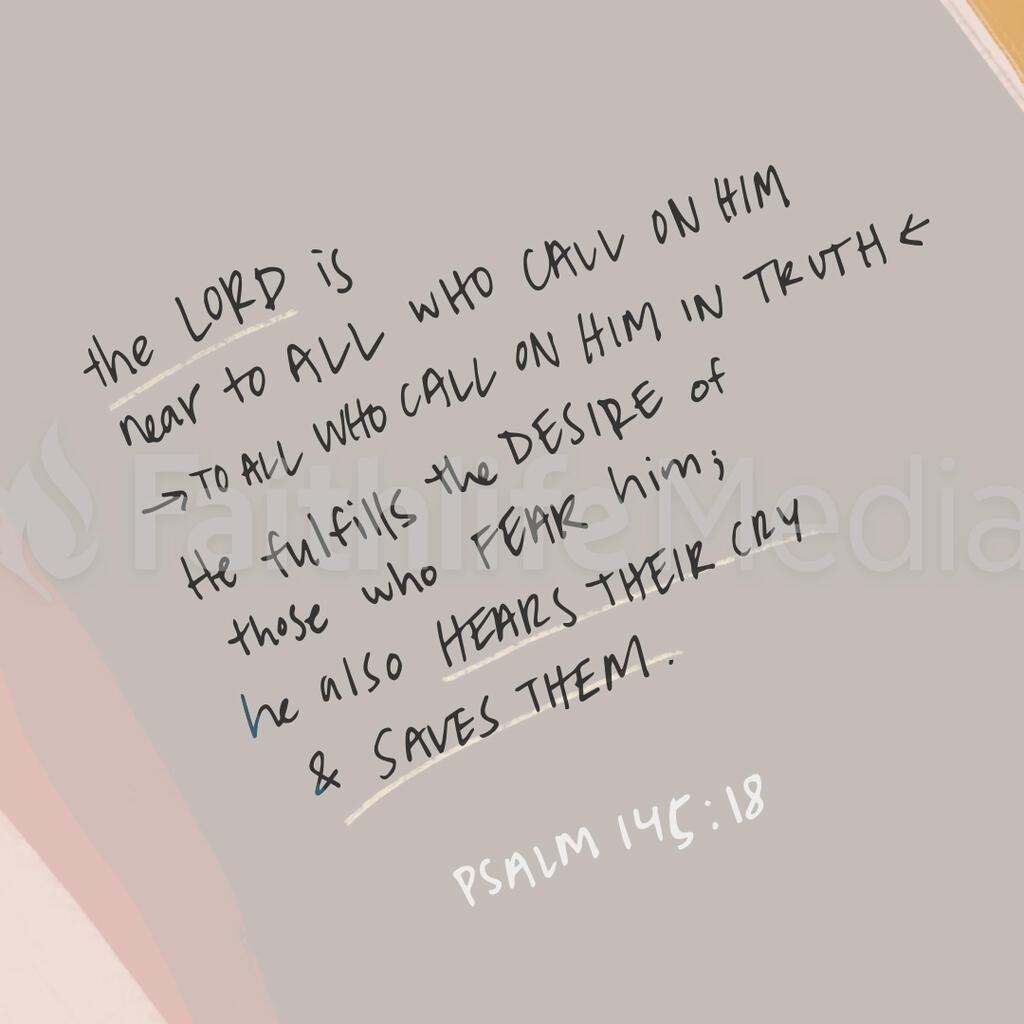 the LORD is
near to ALL WHO CALL ON HIM
→ TO ALL WHO CALL ON HIM IN TRUTH ←
He fulfills the DESIRE of
those who FEAR him;
he also HEARS THEIR CRY
& SAVES THEM.
PSALM 145:18
Faithlife Media